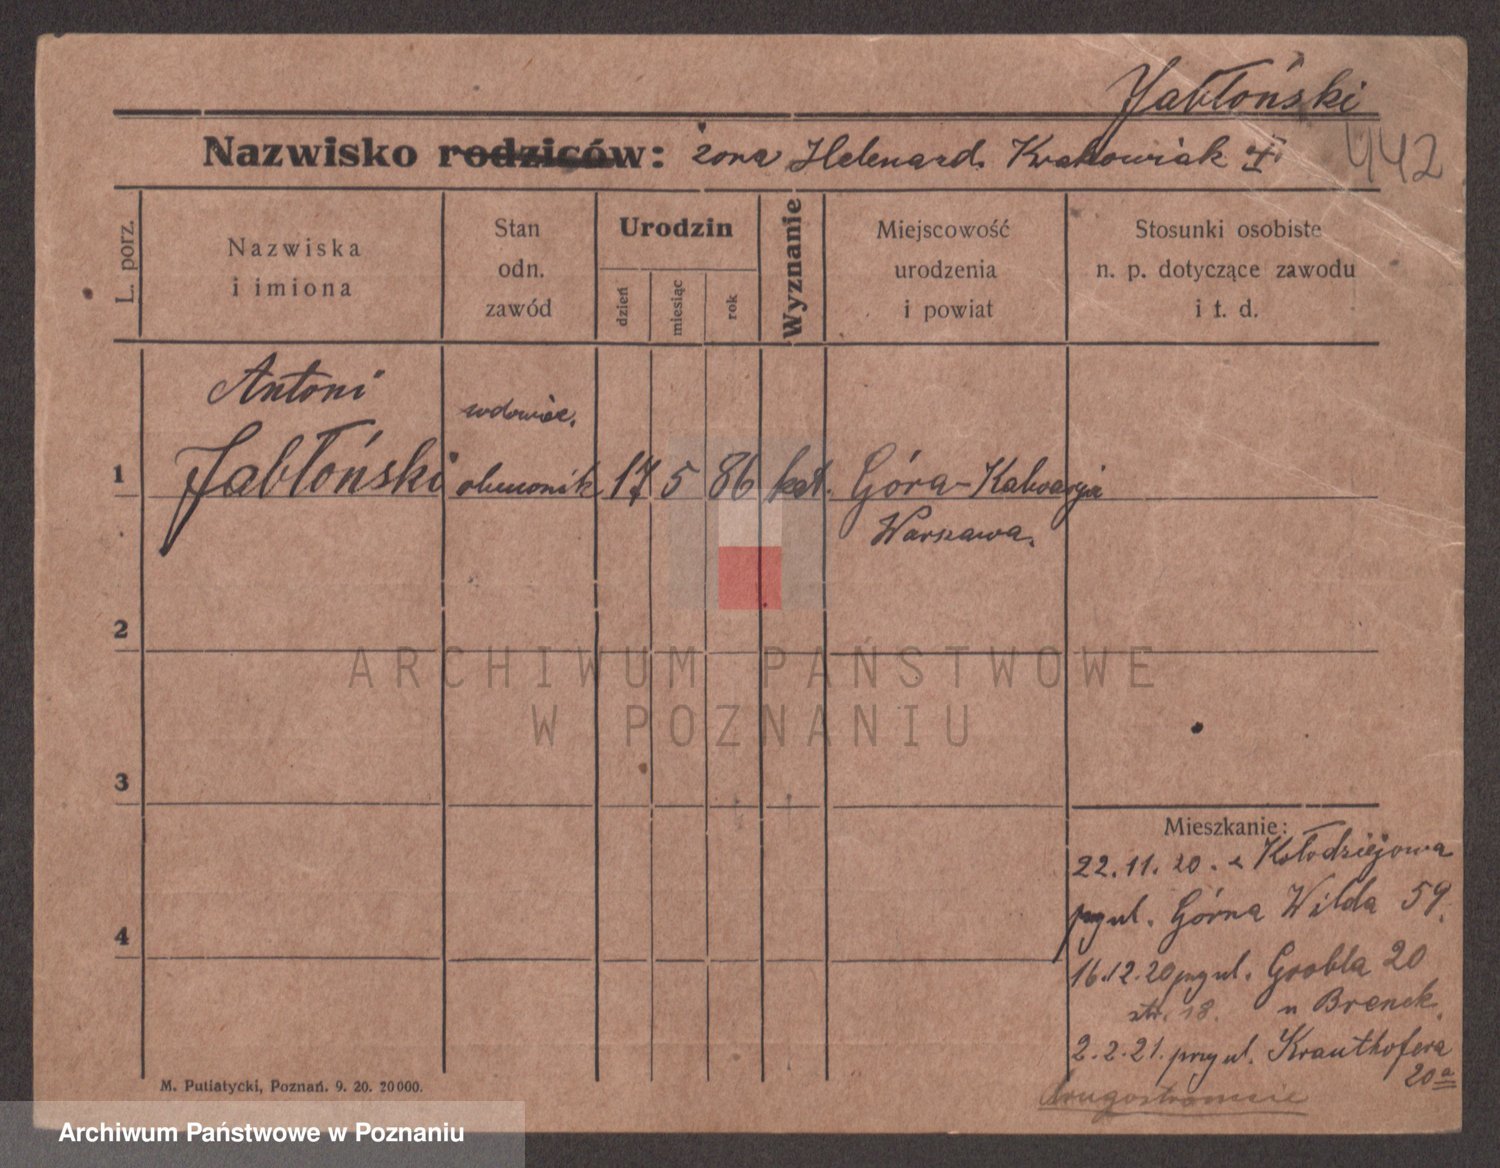 Jabłoński
Nazwisko rodziców: żona Helena rd. Krakowiak †
442
L. porz.
Nazwiska
i imiona
Stan
odn.
zawód
Urodzin
dzień
miesiąc
rok
Wyznanie
Miejscowość
urodzenia
i powiat
Stosunki osobiste
n. p. dotyczące zawodu
i t. d.
Antoni
wdowiec.
1 Jabłoński 17 5 86 kat. Góra-Kalwarja
Warszawa.
2
ARCHIWUM PAŃSTWOWE
W POZNANIU
3
Mieszkanie:
22.11.20. z Kołodziejowa
pzy ul. Górna Wilda 59.
4
16.12.20 pzy ul. Grobla 20
str. 18. u Brenck.
2.2.21. przy ul. Krauthofera
20a
drugostronnie
M. Putiatycki, Poznań. 9. 20. 20000.
Archiwum Państwowe w Poznaniu